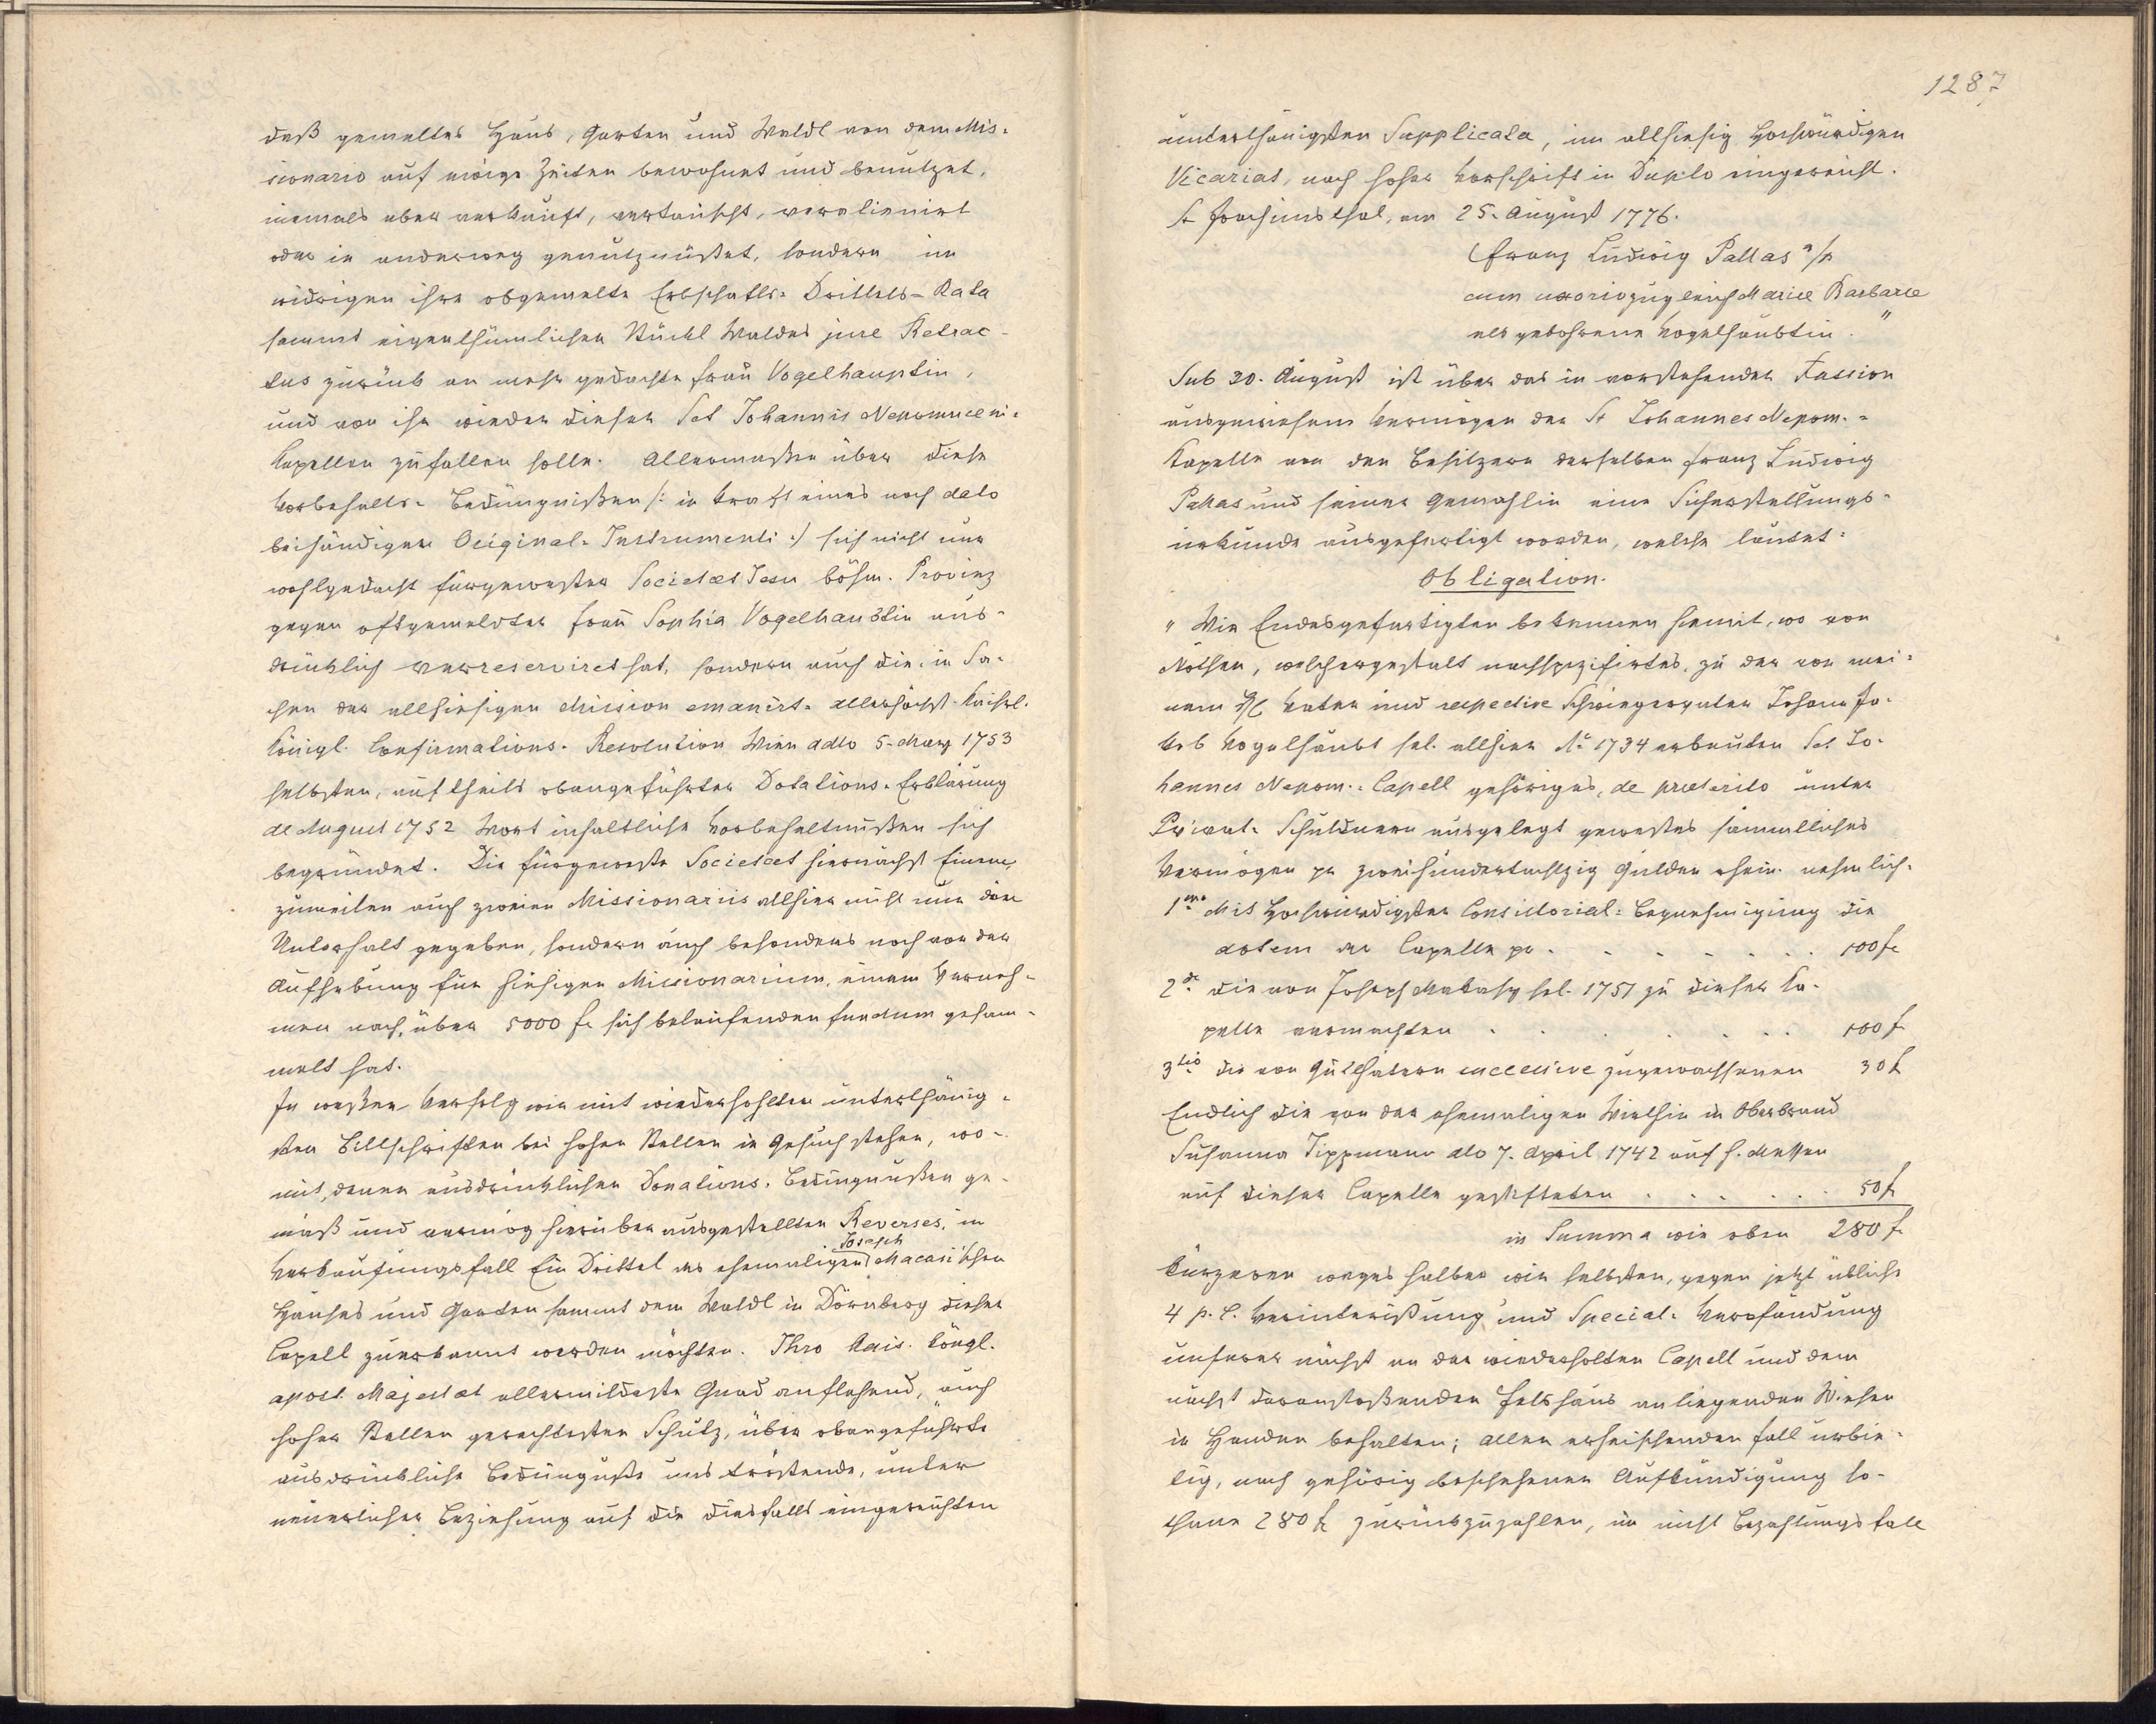 daß gemeltes Haus, Garten und Waldl von dem Mis-
sionario auf ewige Zeiten bewohnet und benutzet,
niemals aber verkauft, vertauscht, veralienirt
oder in anderweg genutznüßet, sondern im
widrigen ihre obgemelte Erbschafts-Drittels-Rata
sammt eigenthümlichen Stückl Waldes jure Retrac-
tus zurück an mehr gedachte Frau Vogelhauptin,
und von ihr wieder dieser Sct Johannis Nepomuceni-
kapellen zufallen solle. Allermaßen über diese
Vorbehalts-Bedüngnißen /: in Kraft eines noch dato
beihändigen Original-Instrumenti :/ sich nicht nur
wohlgedacht fürgewester Societæt Jesu böhm. Provinz
gegen oftgemeldter Frau Sophia Vogelhaubtin aus-
drücklich verreserviret hat, sondern auch die, in Sa-
chen der allhiesigen Mission emanirt-allerhöchst-Kaiserl.
königl. Confirmations-Resolution Wien ddto 5. März 1753
selbsten, auf theils obangeführter Dotations-Erklärung
de August 1752 Wort inhaltliche Vorbehaltnußen sich
begründet. Die fürgeweste Societæt hiernächst Einem,
zuweilen auch zweien Missionariis allhier nicht nur den
Unterhalt gegeben, sondern auch besonders noch von der
Aufhebung für hiesigen Missionarium, einem Verneh-
men nach, über 5000 fr sich belaufenden fundum gesam-
melt hat.
In weßen Verfolg wir mit wiederhohlten unterthänig-
sten Bittschriften bei hohen Stellen in Gesuch stehen, wo-
mit, denen ausdrücklichen Donations-Bedingnußen ge-
mäß und vermög hierüber ausgestellten Reverses, im
Verkaufungsfall Ein Drittel des ehemaligen Joseph Macasi'schen
Hauses und Garten sammt dem Waldl in Dörnberg dieser
Capell zuerkannt werden möchten. Ihro Kais. köngl.
apost. Majestæt allermildeste Gnad anflehend, auch
hoher Stellen gerechtesten Schutz, über obangeführte
ausdrückliche Bedüngnuße uns tröstende, unter
neuerlicher Beziehung auf die diesfalls eingereichten
1287
unterthänigsten Supplicata, im allhiesig Hochwürdigen
Vicariat, nach hoher Vorschrift in Duplo eingereicht.
St Joachimsthal, am 25. August 1776.
Franz Ludwig Pallas m/p
cum uxorio zugleich Mariæ Barbaræ
als gebohrene Vogelhaubtin."
Sub 30. August ist über das in vorstehender Fassion
ausgewiesene Vermögen der St Johannes Nepom.-
Kapelle von den Besitzern derselben Franz Ludwig
Pallas und seiner Gemahlin eine Sicherstellungs-
urkunde ausgefertigt worden, welche lautet:
Obligation.
"Wir Endesgefertigten bekennen hiemit, wo von
Nöthen, welchergestalt nachspezifirtes, zu der von mei-
nem H. Vater und respective Schwiegervater Johann Ja-
kob Vogelhaubt sel. allhier Aº 1734 erbauten Sct Jo-
hannes Nepom.-Capell gehöriges, de præterito unter
Privat-Schuldnern ausgelegt gewestes sämmtliches
Vermögen pr zweihundertachtzig Gulden rhein. nehmlich:
1mo Mit Hochwürdigster Consistorial-Begnehmigung die
dotem der Capelle pr . . . . . . . 100 fr
2do die von Joseph Makasy sel. 1751 zu dieser Ka-
pelle vermachten . . . . . . . 100 f
3tio die von Gutthätern successive zugewachsenen 30 f
Endlich die von der ehemaligen Wirthin in Oberbrand
Susanna Tippmann ddo 7. April 1742 auf h. Messen
auf dieser Capelle gestifteten . . . . . . 50 fr
in Summa wie oben 280 f
kürzeren weges halber wir selbsten, gegen jetzt übliche
4 p. C. Verinterißung und Special-Verpfändung
unserer nächst an der wiederholten Capell und dem
nächst daranstoßenden Felshaus anliegenden Wiesen
in Handen behalten; allen erheischenden Fall urbie-
tig, nach gehörig beschehener Aufkündigung so-
thane 280 fr zurückzuzahlen, im nicht Bezahlungsfall